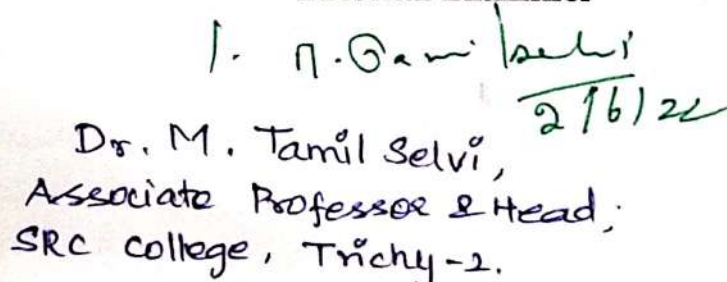 1. M. Tamilselvi
2/6/22
Dr. M. Tamil Selvi,
Associate Professor & Head,
SRC College, Trichy-2.